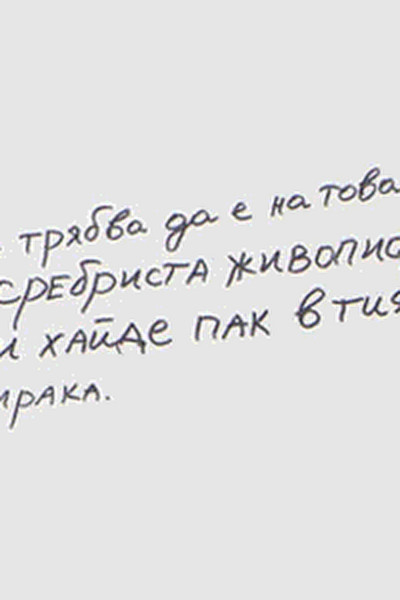 трябва да е на това
сребриста живопис
хайде пак в тия